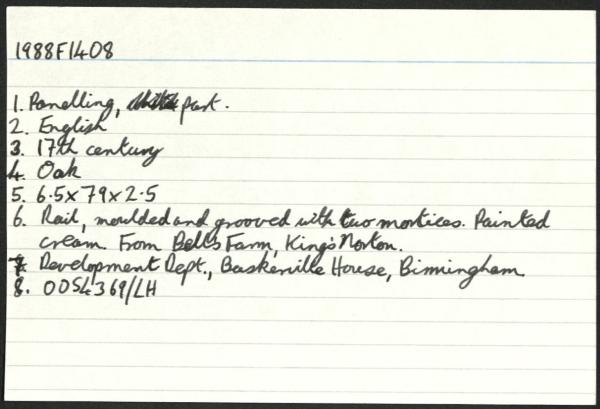 1988F1408
1. Panelling, part.
2. English
3. 17th century
4. Oak
5. 6.5 x 79 x 2.5
6. Rail, moulded and grooved with two mortices. Painted
cream. From Bells Farm, King's Norton.
7. Development Dept., Baskerville House, Birmingham
8. 0054369/LH